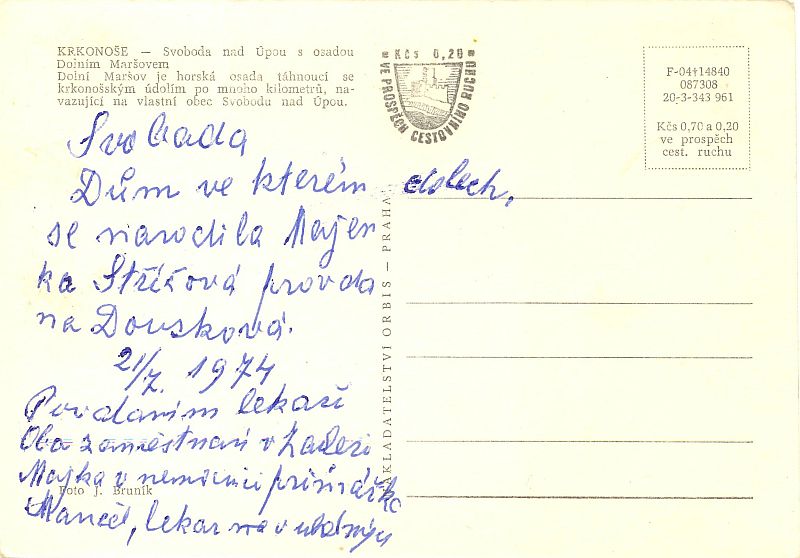 KRKONOŠE — Svoboda nad Úpou s osadou
Dolním Maršovem
Dolní Maršov je horská osada táhnoucí se
krkonošským údolím po mnoho kilometrů, na-
vazující na vlastní obec Svobodu nad Úpou.
Kčs 0,20
VE PROSPĚCH CESTOVNÍHO RUCHU
F-04†14840
087308
20-3-343 961
Kčs 0,70 a 0,20
ve prospěch
cest. ruchu
Svoboda
Dům ve kterém
se narodila Majen
ka Stříčová provda
na Dousková.
21/7. 1974
Povdaním lekaři
Oba zaměstnani v
Majka v nemocnici primářka
Manžel, lekar
NAKLADATELSTVÍ ORBIS — PRAHA
Foto J. Bruník